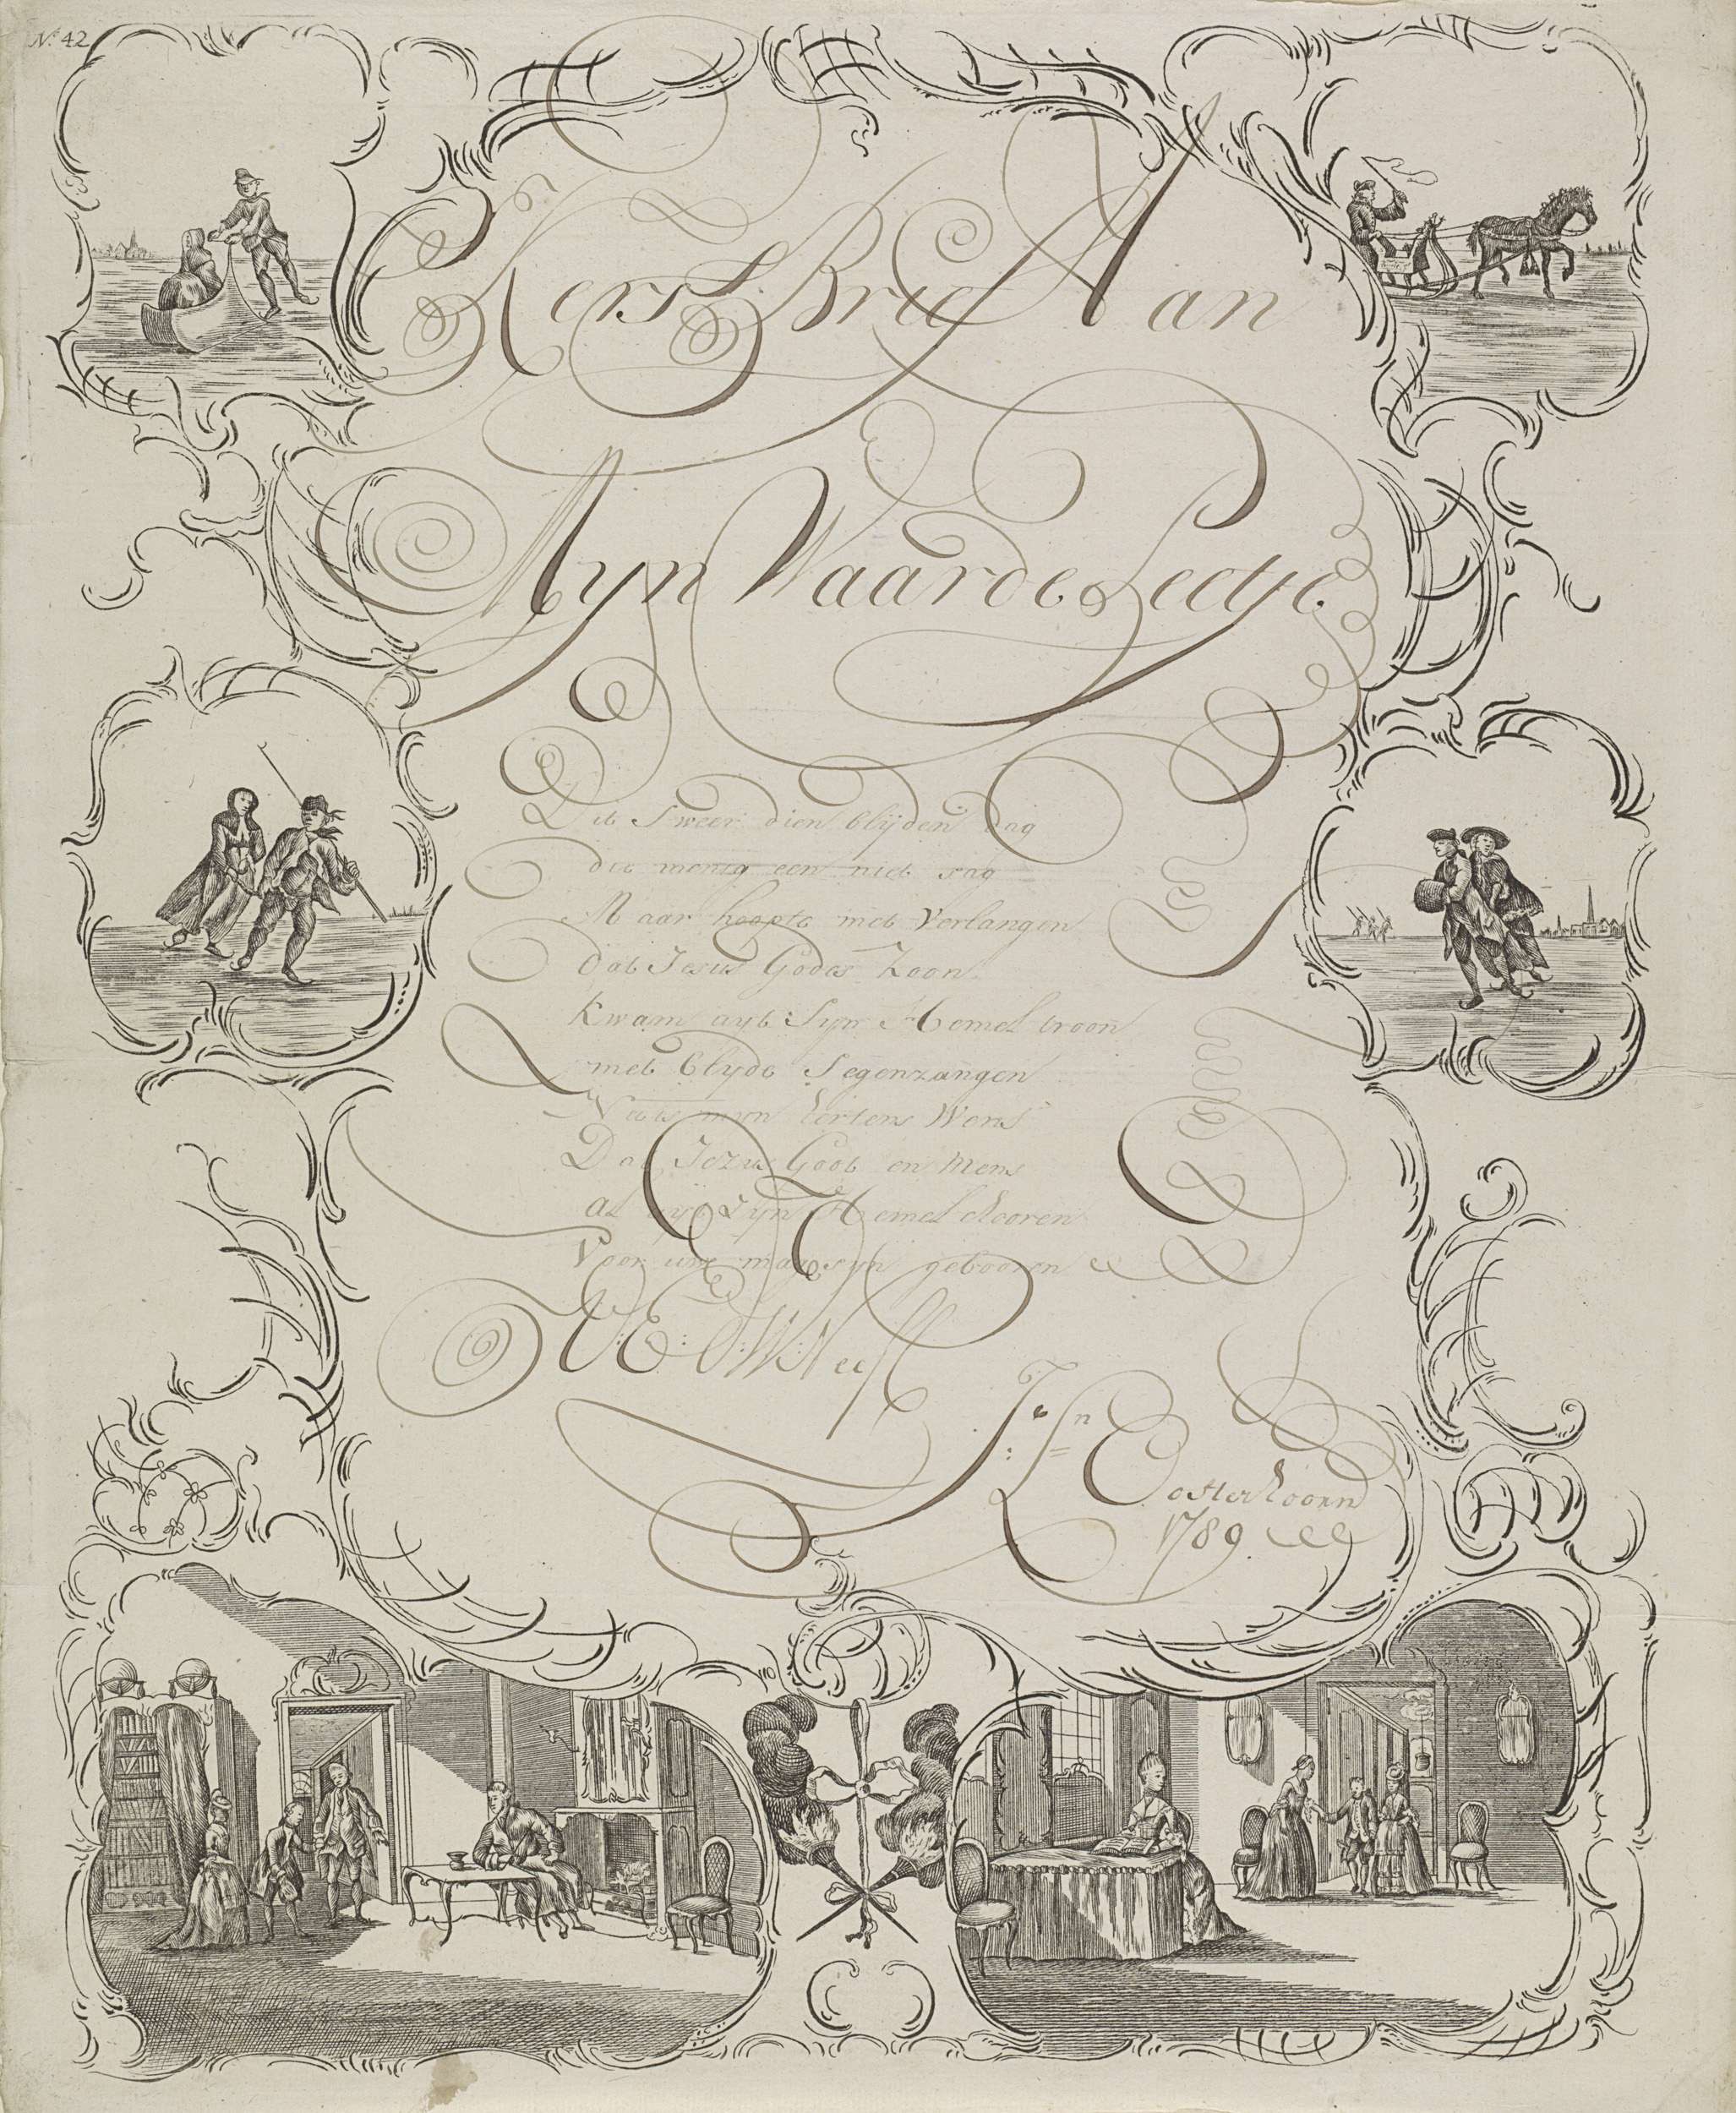 N.º 42
Kers Brief Aan
Myn Waarde Peetje
Dit Sweer dien blyden dag
die menig een niet sag
Maar hoopte met Verlangen
dat Jesus Godes Zoon
Kwam uyt Syn Hemel troon
met blyde Segenzangen
Nu is myn herten Wens
Dat Jezus Godt en Mens
al uyt Syn Hemel Kooren
Voor uw mag syn gebooren
U:E: D:W: Neef
Jn Oosterhoorn
1789.